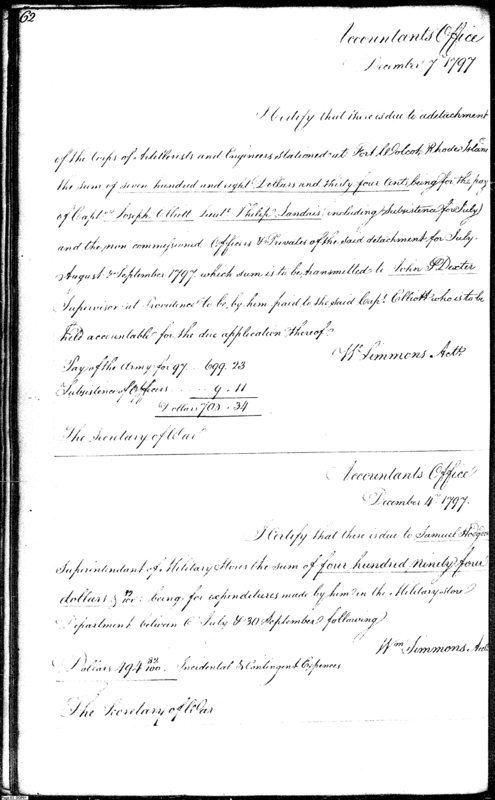 62
Accountants Office
December 7th 1797
I Certify that there is due to a detachment
of the Corps of Artillerists and Engineers stationed at Fort Wolcott Rhode Island
the sum of seven hundred and eight Dollars and thirty four Cents, being for the pay
of Captn Joseph Elliott Lieut. Philip Landais, (including Subsistence for July)
and the non commissioned Officers & Privates of the said detachment for July.
August & September 1797 which sum is to be transmitted to John S Dexter
Supervisor at Providence to be, by him paid to the said Capt. Elliott who is to be
held accountable for the due application thereof.
Wm Simmons Acctt
Pay of the Army for 97 .. 699. 23
Subsistence of Officers .... 9 . 11
Dollars 708 . 34
The Secretary of War
Accountants Office
December 4th 1797.
I Certify that there is due to Samuel Hodgdon
Superintendant of Military Stores the sum of four hundred ninety four
dollars & 82/100: being for expenditures made by him in the Military Store
Department between 6 July & 30 September following
Wm Simmons. Acctt
Dollars 494 82/100. Incidental & Contingent Expences
The Secretary of War